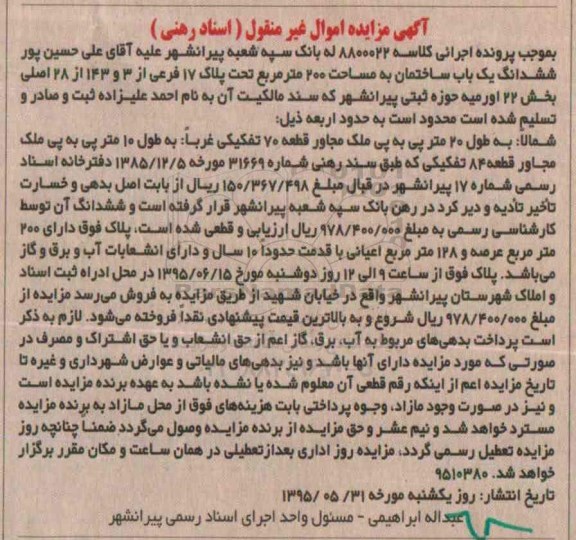 آگهی مزایده اموال غیر منقول ( اسناد رهنی )
بموجب پرونده اجرائی کلاسه ۸۸۰۰۰۲۲ له بانک سپه شعبه پیرانشهر علیه آقای علی حسین پور
ششدانگ یک باب ساختمان به مساحت ۲۰۰ مترمربع تحت پلاک ۱۷ فرعی از ۳ و ۱۴۳ از ۲۸ اصلی
بخش ۲۲ اورمیه حوزه ثبتی پیرانشهر که سند مالکیت آن به نام احمد علیزاده ثبت و صادر و
تسلیم شده است محدود است به حدود اربعه ذیل:
شمالا: به طول ۲۰ متر پی به پی ملک مجاور قطعه ۷۰ تفکیکی غرباً: به طول ۱۰ متر پی به پی ملک
مجاور قطعه۸۴ تفکیکی که طبق سند رهنی شماره ۳۱۶۶۹ مورخه ۱۳۸۵/۱۲/۵ دفترخانه اسناد
رسمی شماره ۱۷ پیرانشهر در قبال مبلغ ۱۵۰/۳۶۷/۴۹۸ ریال از بابت اصل بدهی و خسارت
تأخیر تأدیه و دیر کرد در رهن بانک سپه شعبه پیرانشهر قرار گرفته است و ششدانگ آن توسط
کارشناسی رسمی به مبلغ ۹۷۸/۴۰۰/۰۰۰ ریال ارزیابی و قطعی شده است، پلاک فوق دارای ۲۰۰
متر مربع عرصه و ۱۲۸ متر مربع اعیانی با قدمت حدودا ۱۰ سال و دارای انشعابات آب و برق و گاز
می‌باشد. پلاک فوق از ساعت ۹ الی ۱۲ روز دوشنبه مورخ ۱۳۹۵/۰۶/۱۵ در محل ادراه ثبت اسناد
و املاک شهرستان پیرانشهر واقع در خیابان شهید از طریق مزایده به فروش می‌رسد مزایده از
مبلغ ۹۷۸/۴۰۰/۰۰۰ ریال شروع و به بالاترین قیمت پیشنهادی نقدا فروخته می‌شود. لازم به ذکر
است پرداخت بدهی‌های مربوط به آب، برق، گاز اعم از حق انشعاب و یا حق اشتراک و مصرف در
صورتی که مورد مزایده دارای آنها باشد و نیز بدهی‌های مالیاتی و عوارض شهرداری و غیره تا
تاریخ مزایده اعم از اینکه رقم قطعی آن معلوم شده یا نشده باشد به عهده برنده مزایده است
و نیز در صورت وجود مازاد، وجوه پرداختی بابت هزینه‌های فوق از محل مازاد به برنده مزایده
مسترد خواهد شد و نیم عشر و حق مزایده از برنده مزایده وصول می‌گردد ضمنا چنانچه روز
مزایده تعطیل رسمی گردد، مزایده روز اداری بعدازتعطیلی در همان ساعت و مکان مقرر برگزار
خواهد شد. ۹۵۱۰۳۸۰
تاریخ انتشار: روز یکشنبه مورخه ۳۱/ ۰۵ /۱۳۹۵
عبداله ابراهیمی - مسئول واحد اجرای اسناد رسمی پیرانشهر